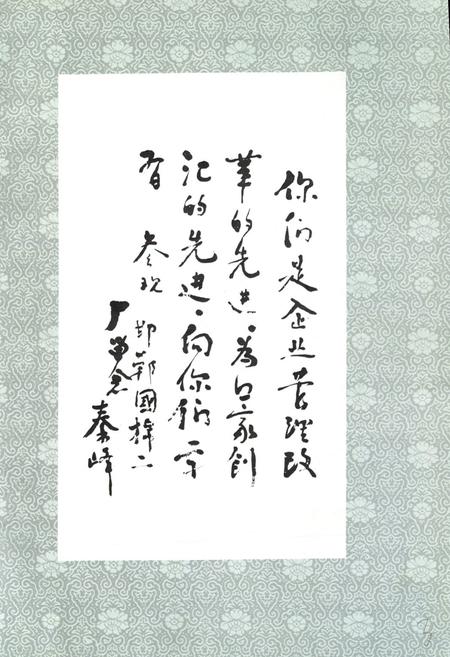 你们是企业管理改
革的先进、为国家创
汇的先进、向你们学
习 参观
邯郸國棉二
厂留念
秦峰